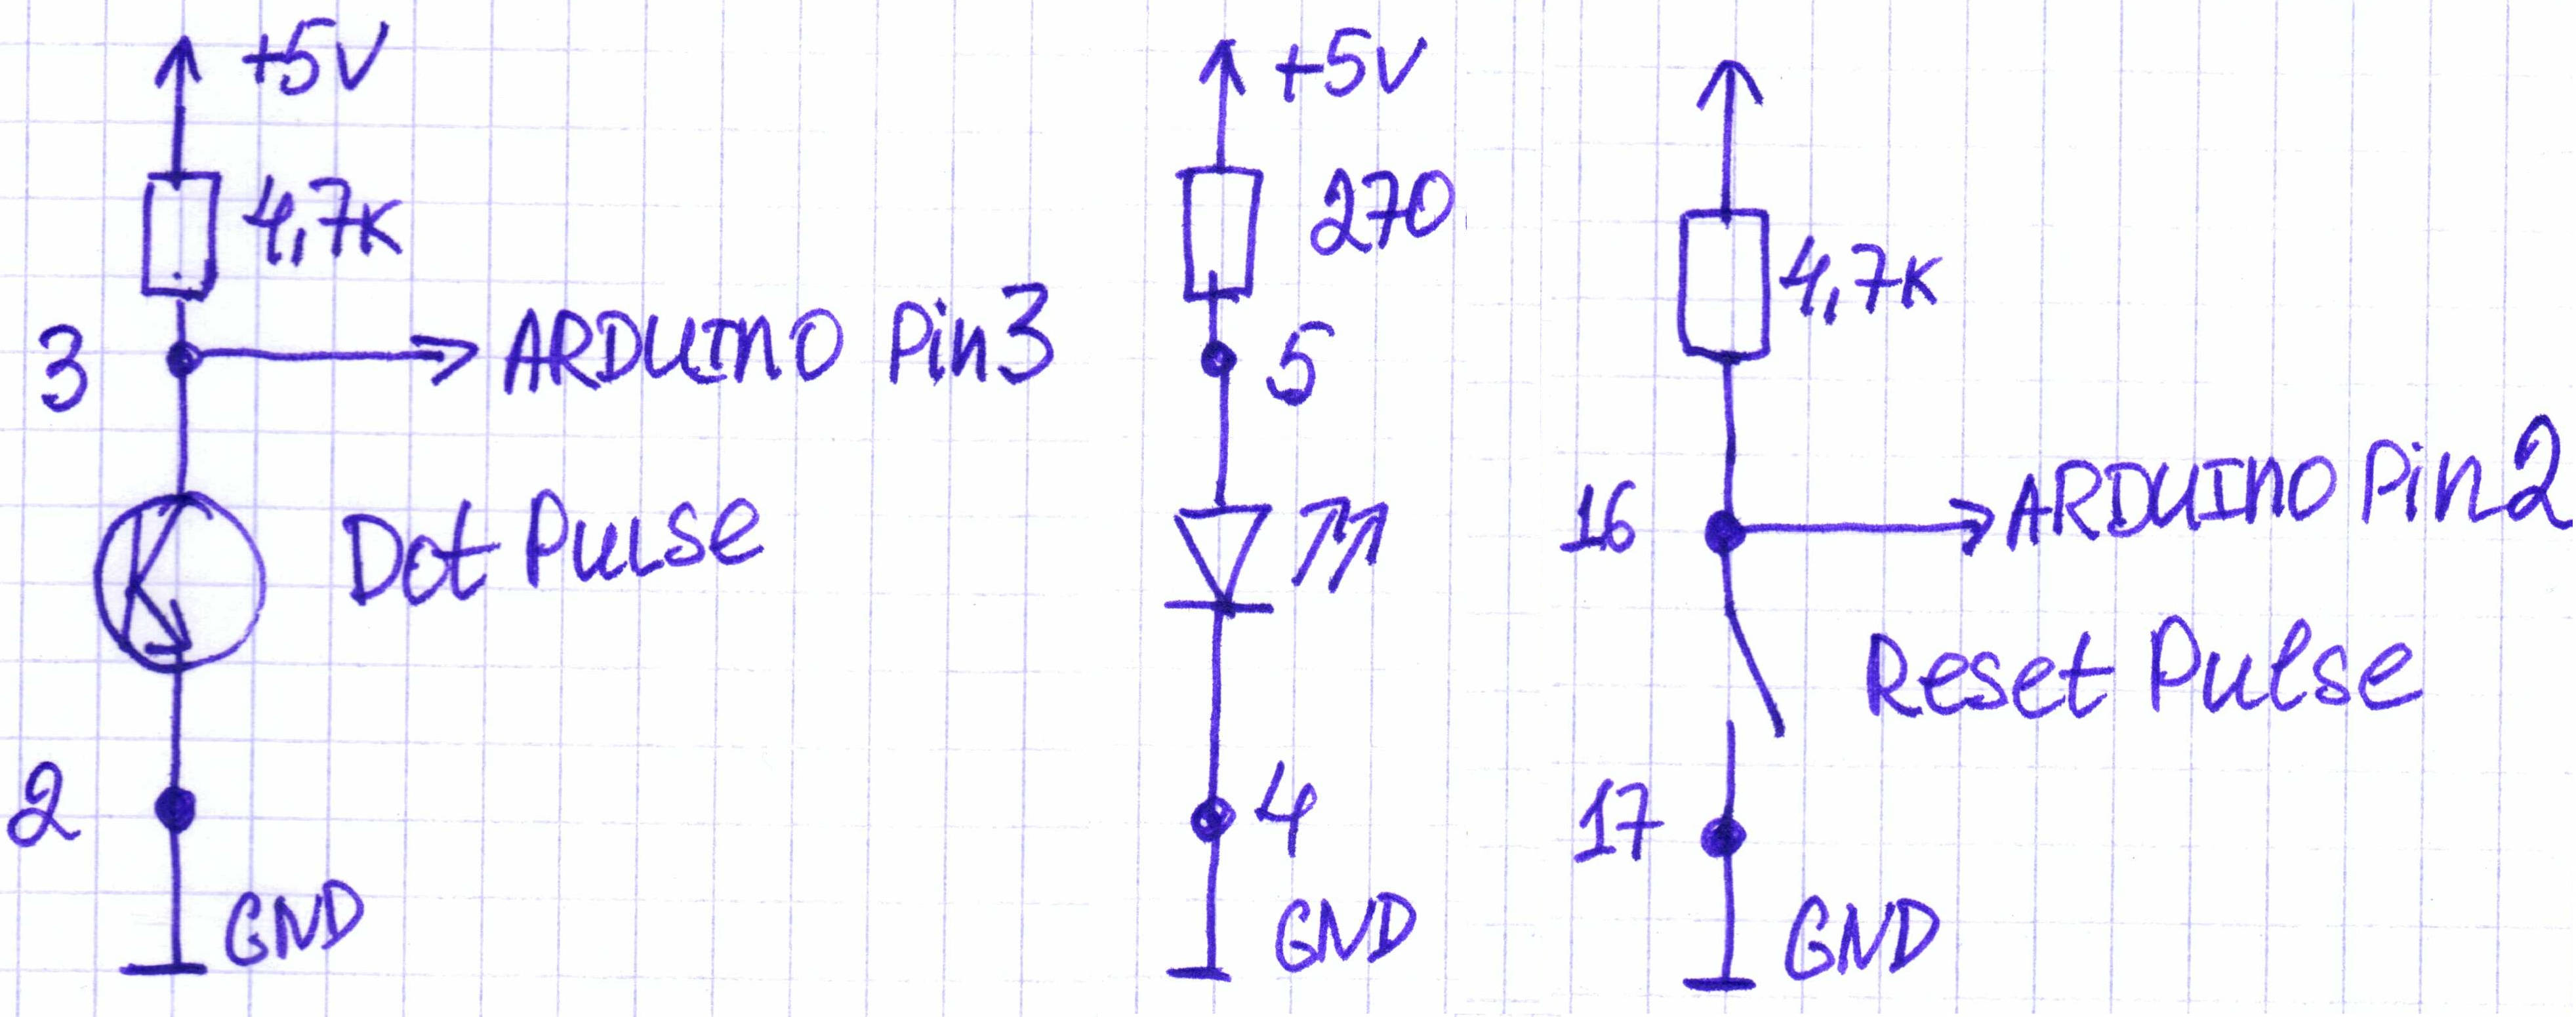 +5V
4,7K
3
ARDUINO Pin3
Dot Pulse
2
GND
+5V
270
5
4
GND
4,7K
16
ARDUINO Pin2
Reset Pulse
17
GND